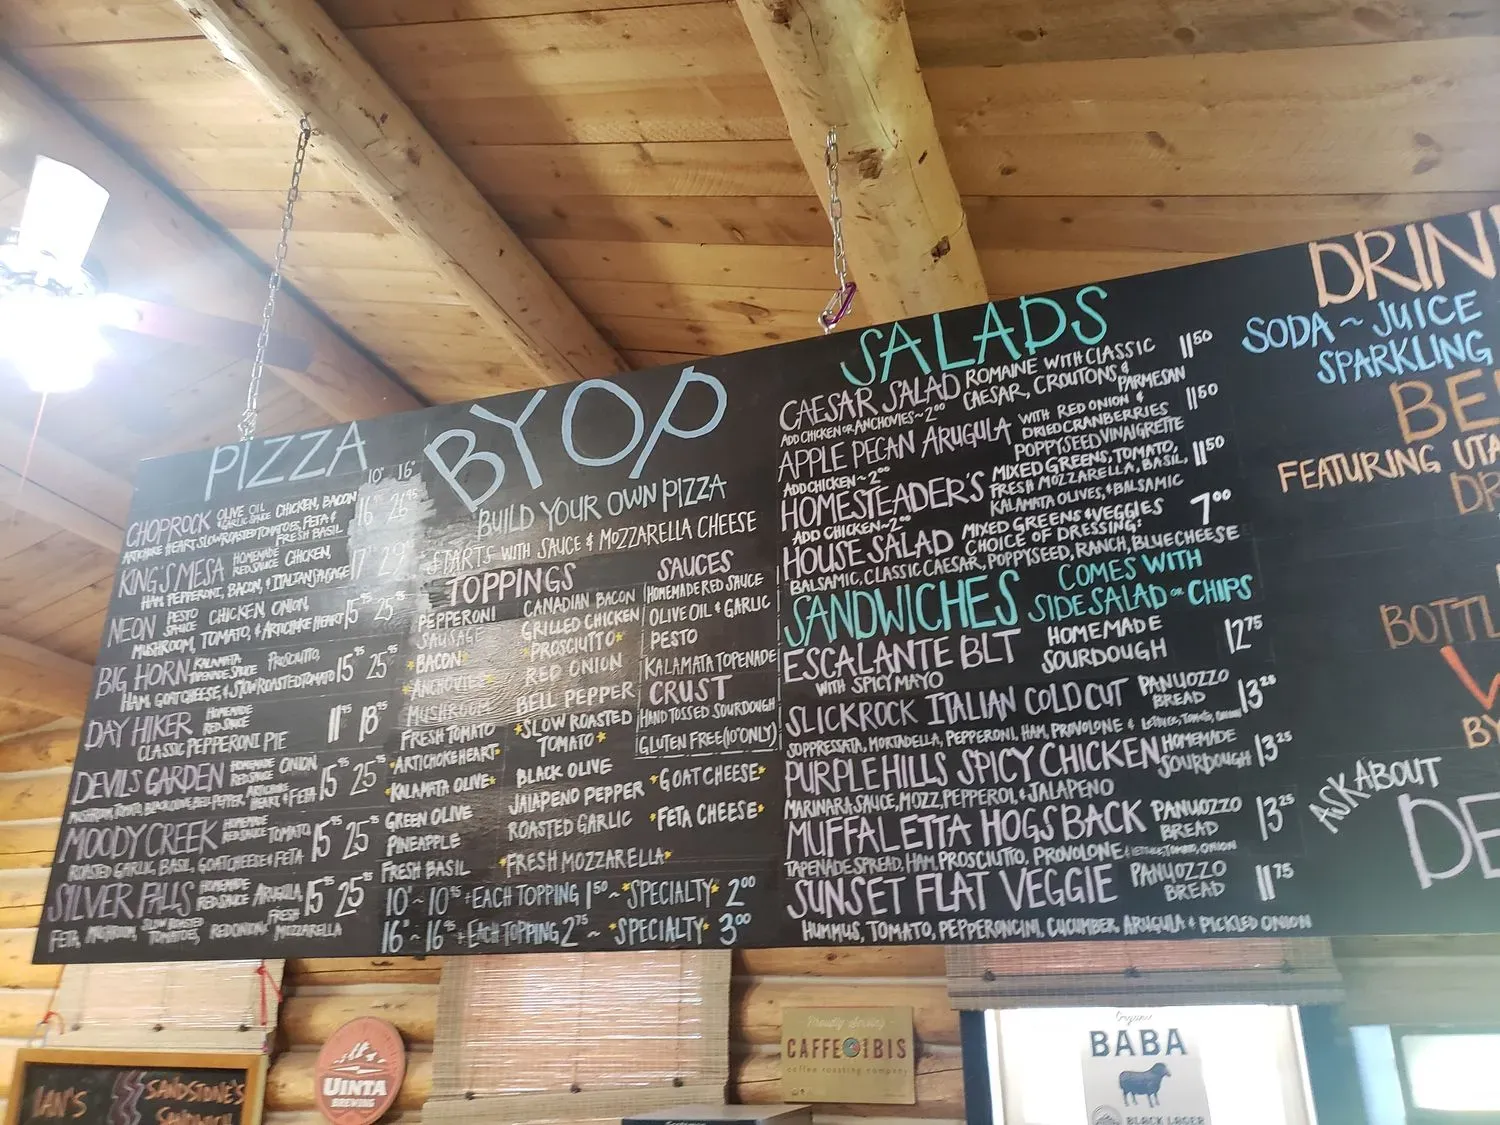 PIZZA
10" 16"
CHOPROCK OLIVE OIL & GARLIC SAUCE CHICKEN, BACON
ARTICHOKE HEART, SLOW ROASTED TOMATOES, FETA & FRESH BASIL
KING'S MESA HOMEMADE RED SAUCE CHICKEN,
HAM, PEPPERONI, BACON, & ITALIAN SAUSAGE
NEON PESTO SAUCE CHICKEN, ONION, 15 95 25 95
MUSHROOM, TOMATO, & ARTICHOKE HEART
BIG HORN KALAMATA TAPENADE SAUCE PROSCIUTTO, 15 95 25 95
HAM, GOAT CHEESE, & SLOW ROASTED TOMATO
DAY HIKER HOMEMADE RED SAUCE 11 95 18 95
CLASSIC PEPPERONI PIE
DEVILS GARDEN HOMEMADE RED SAUCE ONION, 15 95 25 95
MUSHROOM, TOMATO, BLACK OLIVE, BELL PEPPER, ARTICHOKE HEART & FETA
MOODY CREEK HOMEMADE RED SAUCE TOMATO, 15 95 25 95
ROASTED GARLIC, BASIL, GOAT CHEESE & FETA
SILVER FALLS HOMEMADE RED SAUCE ARUGULA, 15 95 25 95
FETA, MUSHROOM, SLOW ROASTED TOMATOES, RED ONION, FRESH MOZZARELLA
BYOP
BUILD YOUR OWN PIZZA
STARTS WITH SAUCE & MOZZARELLA CHEESE
TOPPINGS
PEPPERONI
SAUSAGE
*BACON*
*ANCHOVIES*
MUSHROOM
FRESH TOMATO
*ARTICHOKE HEART*
*KALAMATA OLIVE*
GREEN OLIVE
PINEAPPLE
FRESH BASIL
CANADIAN BACON
GRILLED CHICKEN
*PROSCIUTTO*
RED ONION
BELL PEPPER
*SLOW ROASTED
TOMATO*
BLACK OLIVE
JALAPENO PEPPER
ROASTED GARLIC
*FRESH MOZZARELLA*
*GOAT CHEESE*
*FETA CHEESE*
SAUCES
HOMEMADE RED SAUCE
OLIVE OIL & GARLIC
PESTO
KALAMATA TOPENADE
CRUST
HAND TOSSED SOURDOUGH
GLUTEN FREE (10" ONLY)
10" ~ 10 95 + EACH TOPPING 1 50 ~ *SPECIALTY* 2 00
16" ~ 16 95 + EACH TOPPING 2 75 ~ *SPECIALTY* 3 00
SALADS
CAESAR SALAD ROMAINE WITH CLASSIC 11 50
CAESAR, CROUTONS & PARMESAN
ADD CHICKEN OR ANCHOVIES ~ 2 00
APPLE PECAN ARUGULA WITH RED ONION & 11 50
DRIED CRANBERRIES
POPPYSEED VINAIGRETTE
ADD CHICKEN ~ 2 00
HOMESTEADER'S MIXED GREENS, TOMATO, 11 50
FRESH MOZZARELLA, BASIL,
KALAMATA OLIVES, & BALSAMIC
ADD CHICKEN ~ 2 00
HOUSE SALAD MIXED GREENS & VEGGIES 7 00
CHOICE OF DRESSING:
BALSAMIC, CLASSIC CAESAR, POPPYSEED, RANCH, BLUE CHEESE
SANDWICHES COMES WITH
SIDE SALAD OR CHIPS
ESCALANTE BLT HOMEMADE SOURDOUGH 12 75
WITH SPICY MAYO
SLICKROCK ITALIAN COLD CUT PANUOZZO BREAD
SOPPRESSATA, MORTADELLA, PEPPERONI, HAM, PROVOLONE & LETTUCE, TOMATO, ONION
PURPLE HILLS SPICY CHICKEN HOMEMADE SOURDOUGH 13 25
MARINARA SAUCE, MOZZ, PEPPERONI, & JALAPENO
MUFFALETTA HOGSBACK PANUOZZO BREAD 13 25
TAPENADE SPREAD, HAM, PROSCIUTTO, PROVOLONE & LETTUCE, TOMATO, ONION
SUNSET FLAT VEGGIE PANUOZZO BREAD 11 75
HUMMUS, TOMATO, PEPPERONCINI, CUCUMBER, ARUGULA & PICKLED ONION
DRIN
SODA ~ JUICE
SPARKLING
BE
FEATURING UTA
DR
BOTTL
BY
ASK ABOUT
DE
IAN'S SANDSTONE'S
UINTA
BREWING
Proudly Serving
CAFFE IBIS
coffee roasting company
Organic
BABA
BLACK LAGER